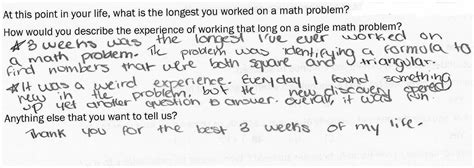 At this point in your life, what is the longest you worked on a math problem?
How would you describe the experience of working that long on a single math problem?
*3 weeks was the longest I've ever worked on
a math problem. The problem was identifying a formula to
find numbers that were both square and triangular.
*It was a weird experience. Everyday I found something
new in the problem, but the new discovery opened
up yet another question to answer. Overall, it was fun.
Anything else that you want to tell us?
Thank you for the best 3 weeks of my life.